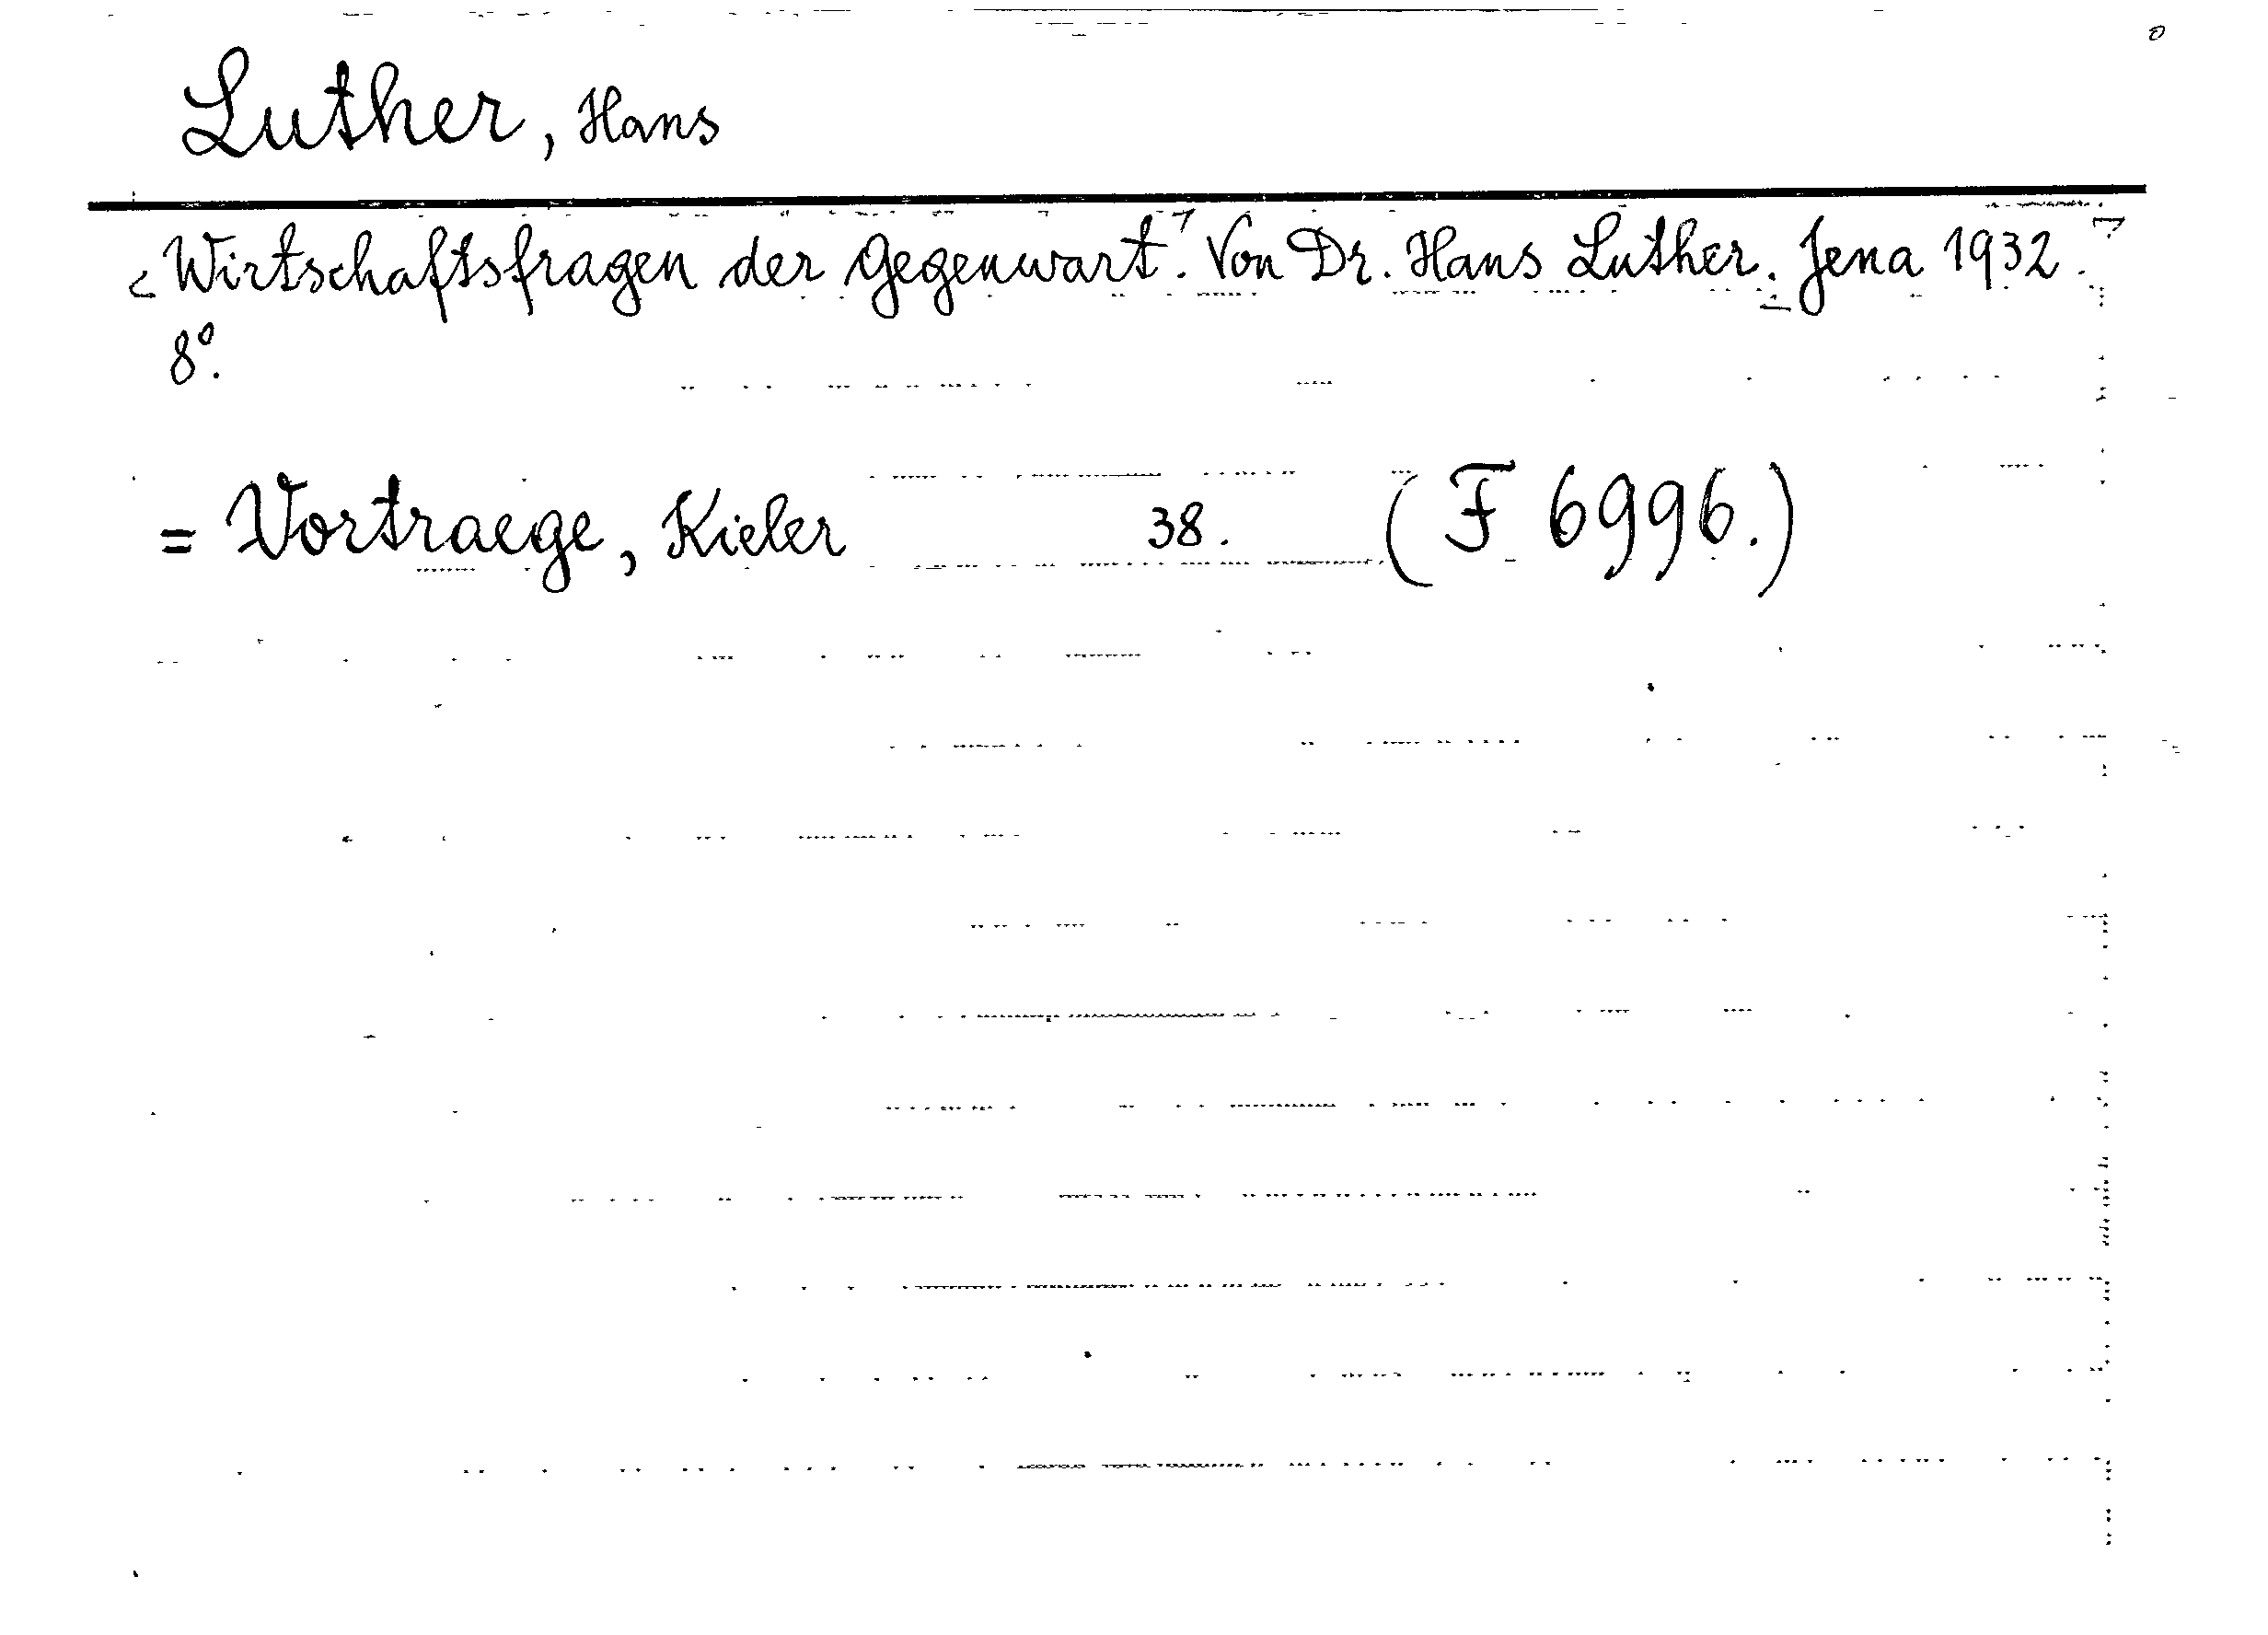 Luther, Hans
Wirtschaftsfragen der Gegenwart. Von Dr. Hans Luther. Jena 1932.
8°.
= Vortraege, Kieler 38. (F 6996.)